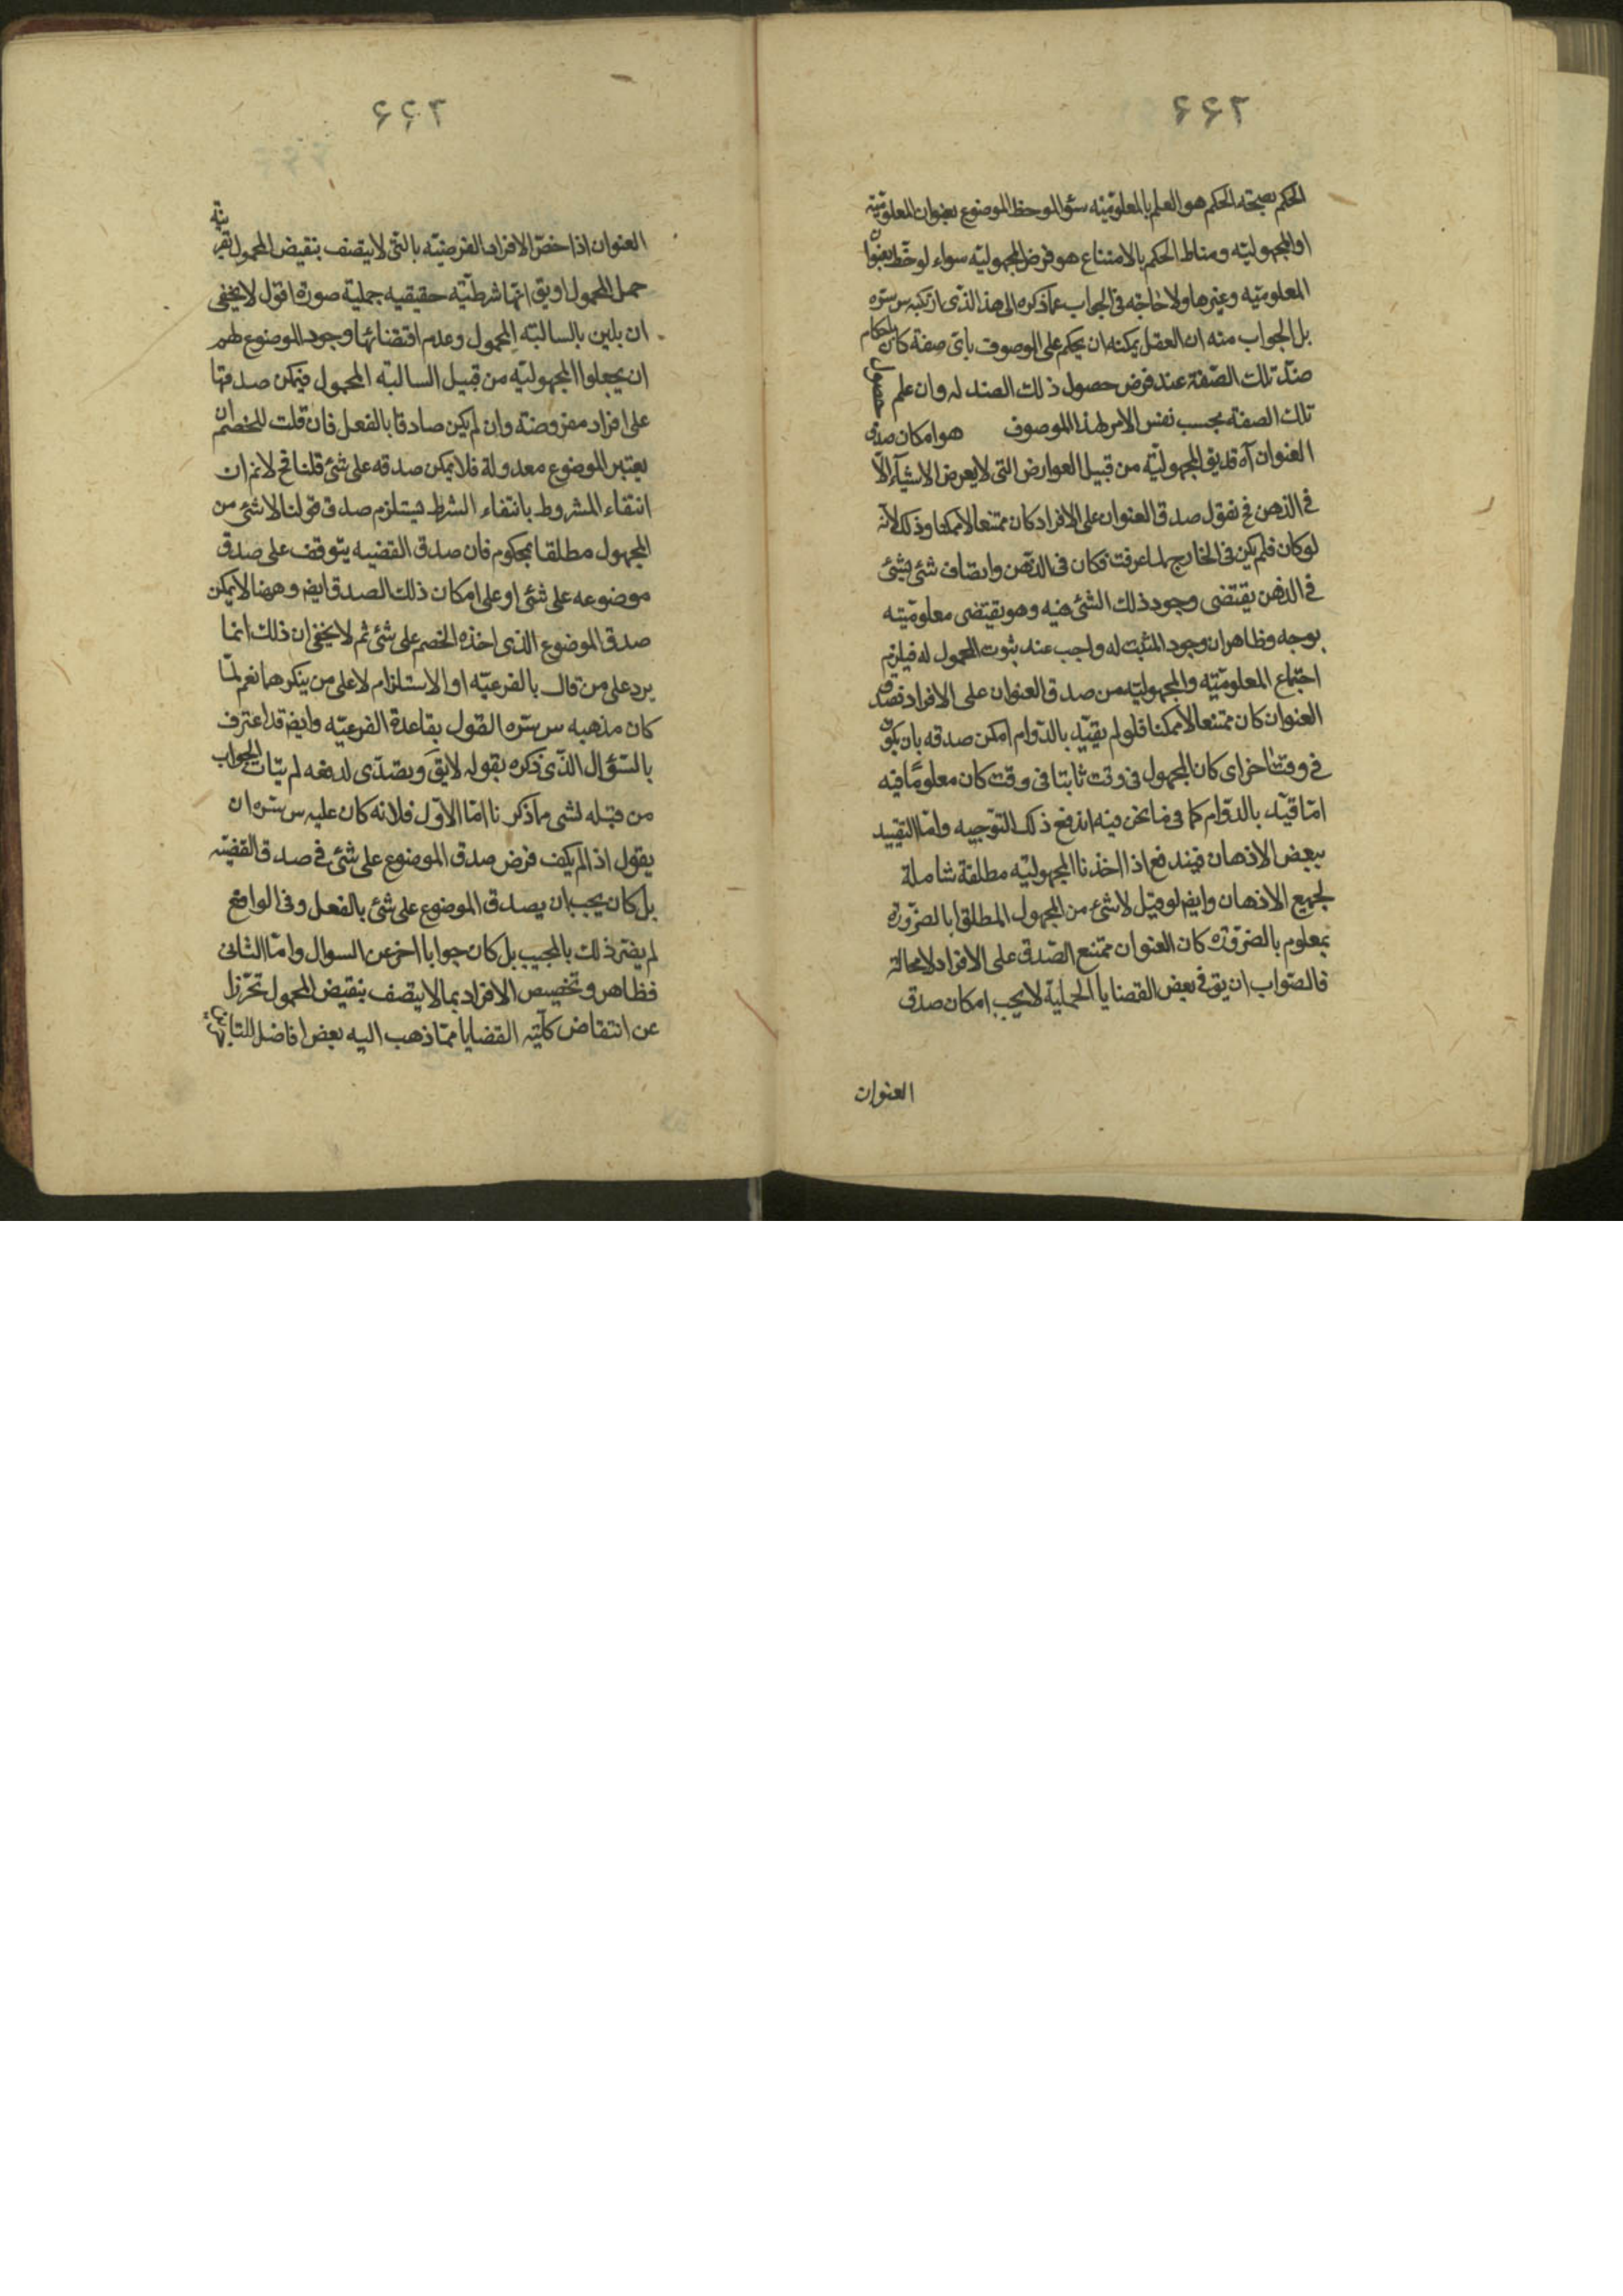 ۲۶۶
الحكم بصحته الحكم هو العلم بالمعلوميّته سؤا لوحظ الموضوع بعنوان المعلوميّته
او المجهوليّه ومناط الحكم بالامتناع هو فرض المجهوليّه سواء لوحظ بعنوان
المعلوميّه وغيرها ولا حاجة فى الجواب عمّا ذكره الى هذا الّذى ارتكبه س سرّه
بل الجواب منه ان العقل يمكنه ان يحكم على الموصوف باىّ صفة كان باحكام
ضدّ تلك الصّفة عند فرض حصول ذلك الضد له وان علم حصول
تلك الصفة بحسب نفس الامر لهذا الموصوف هو امكان صدق
العنوان آه قد يق المجهوليّه من قبيل العوارض التى لا يعرض الاشيآء الّا
فى الذهن فح نقول صدق العنوان على الافراد كان ممتنعا لا ممكنا وذلك لأنّه
لو كان فلم يكن فى الخارج لما عرفت فكان فى الذهن واتصاف شئ بشئ
فى الذهن يقتضى وجود ذلك الشئ فيه وهو يقتضى معلوميّته
بوجه وظاهر ان وجود المثبت له واجب عند ثبوت المحمول له فيلزم
اجتماع المعلوميّه والمجهوليّه من صدق العنوان على الافراد فصدق
العنوان كان ممتنعا لا ممكنا فلو لم يقيّد بالدّوام امكن صدقه بان يكون
فى وقت اخر اى كان المجهول فى وقت ثابتا فى وقت كان معلومًا فيه
امّا قيّد بالدوّام كما فى ما نحن فيه اندفع ذلك التوجيه وامّا التقييد
ببعض الاذهان فيندفع اذا اخذنا المجهوليّه مطلقة شاملة
لجميع الاذهان وايضا لو قيل لا شئ من المجهول المطلق بالضّرورة
بمعلوم بالضرّورة كان العنوان ممتنع الصّدق على الافراد لا محالة
فالصّواب ان يق فى بعض القضايا الحمليّة لا يجب امكان صدق
العنوان
۲۶۶
العنوان اذا خصّ الافراد الفرضيّه بالتى لا يتصف بنقيض المحمول بقرينة
حمل المحمول او يق انّها شرطيّه حقيقيه حملية صورة اقول لا يخفى
ان بلين بالسالبته المحمول وعدم اقتضائها وجود الموضوع لهم
ان يجعلوا المجهوليّه من قبيل السالبته المحمول فيمكن صدقها
على افراد مفروضة وان لم يكن صادقا بالفعل فان قلت للخصم ان
يعتبر الموضوع معدولة فلا يمكن صدقه على شئ قلنا فح لا نم ان
انتفاء المشروط بانتفاء الشرط يستلزم صدق قولنا لا شئ من
المجهول مطلقا بمحكوم فان صدق القضيه يتوقف على صدق
موضوعه على شئ او على امكان ذلك الصدق ايض وههنا لا يمكن
صدق الموضوع الذى اخذه الخصم على شئ ثم لا يخفى ان ذلك انما
يرد على من قال بالفرعيّه او الاستلزام لا على من ينكرهما نعم لمّا
كان مذهبه س سرّه القول بقاعدة الفرعيّه وايض قد اعترف
بالسّؤال الذّى ذكره بقوله لايق وبصدّى لدفعه لم يتات الجواب
من قبله بشى مما ذكرنا امّا الاوّل فلانه كان عليه س سرّه ان
يقول اذ الم يكف فرض صدق الموضوع على شئ فى صدق القضيّه
بل كان يجب ان يصدق الموضوع على شئ بالفعل وفى الواقع
لم يضرّ ذلك بالمجيب بل كان جوابا اخر عن السوال وامّا الثانى
فظاهر وتخصيص الافراد بما لا يتصف بنقيض المحمول تحّرزا
عن انتقاض كلّيّه القضايا ممّا ذهب اليه بعض افاضل